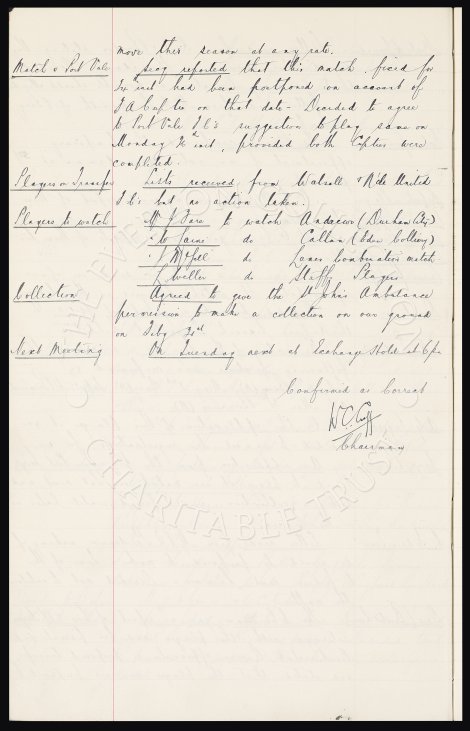 move this season at any rate.
Match v Port Vale Secy reported that this match, fixed for
inst had been postponed on account of
F A Cup ties on that date - Decided to agree
to Port Vale F.C's suggestion to play same on
Monday inst, provided both Cupties were
completed.
Players on Transfer Lists received from Walsall & United
F C's but no action taken.
Players to watch Mr to watch Andrews (Durham City)
" W do Callan (Eden Colliery)
" J do Lancs Combination match
do Staffs Players
Collection Agreed to give the St Johns Ambulance
permission to make a collection on our ground
on Feby
Next Meeting On Tuesday next at Exchange Hotel at 6 pm
Confirmed as Correct
W.C. Cuff
Chairman
THE EVERTON
CHARITABLE TRUST